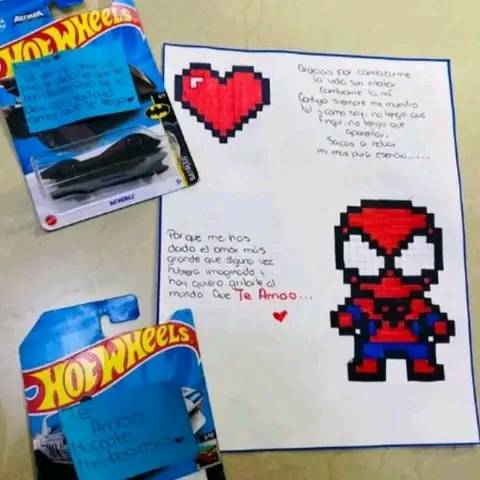 BATMAN
HOT WHEELS
BATMOBILE
Gracias por cambiarme
la vida sin intentar
cambiarme la mí
Contigo siempre me muestro
tal y como soy, no tengo que
fingir, no tengo que
aparentar.
Sacas a relucir
mi más pura esencia.....
Por que me has
dado el amor más
grande que alguna vez
hubiera imaginado y
hoy quiero gritarle al
mundo Que Te Amoo...
HOT WHEELS
Te
Amoo
Muchote
Mi Precioso